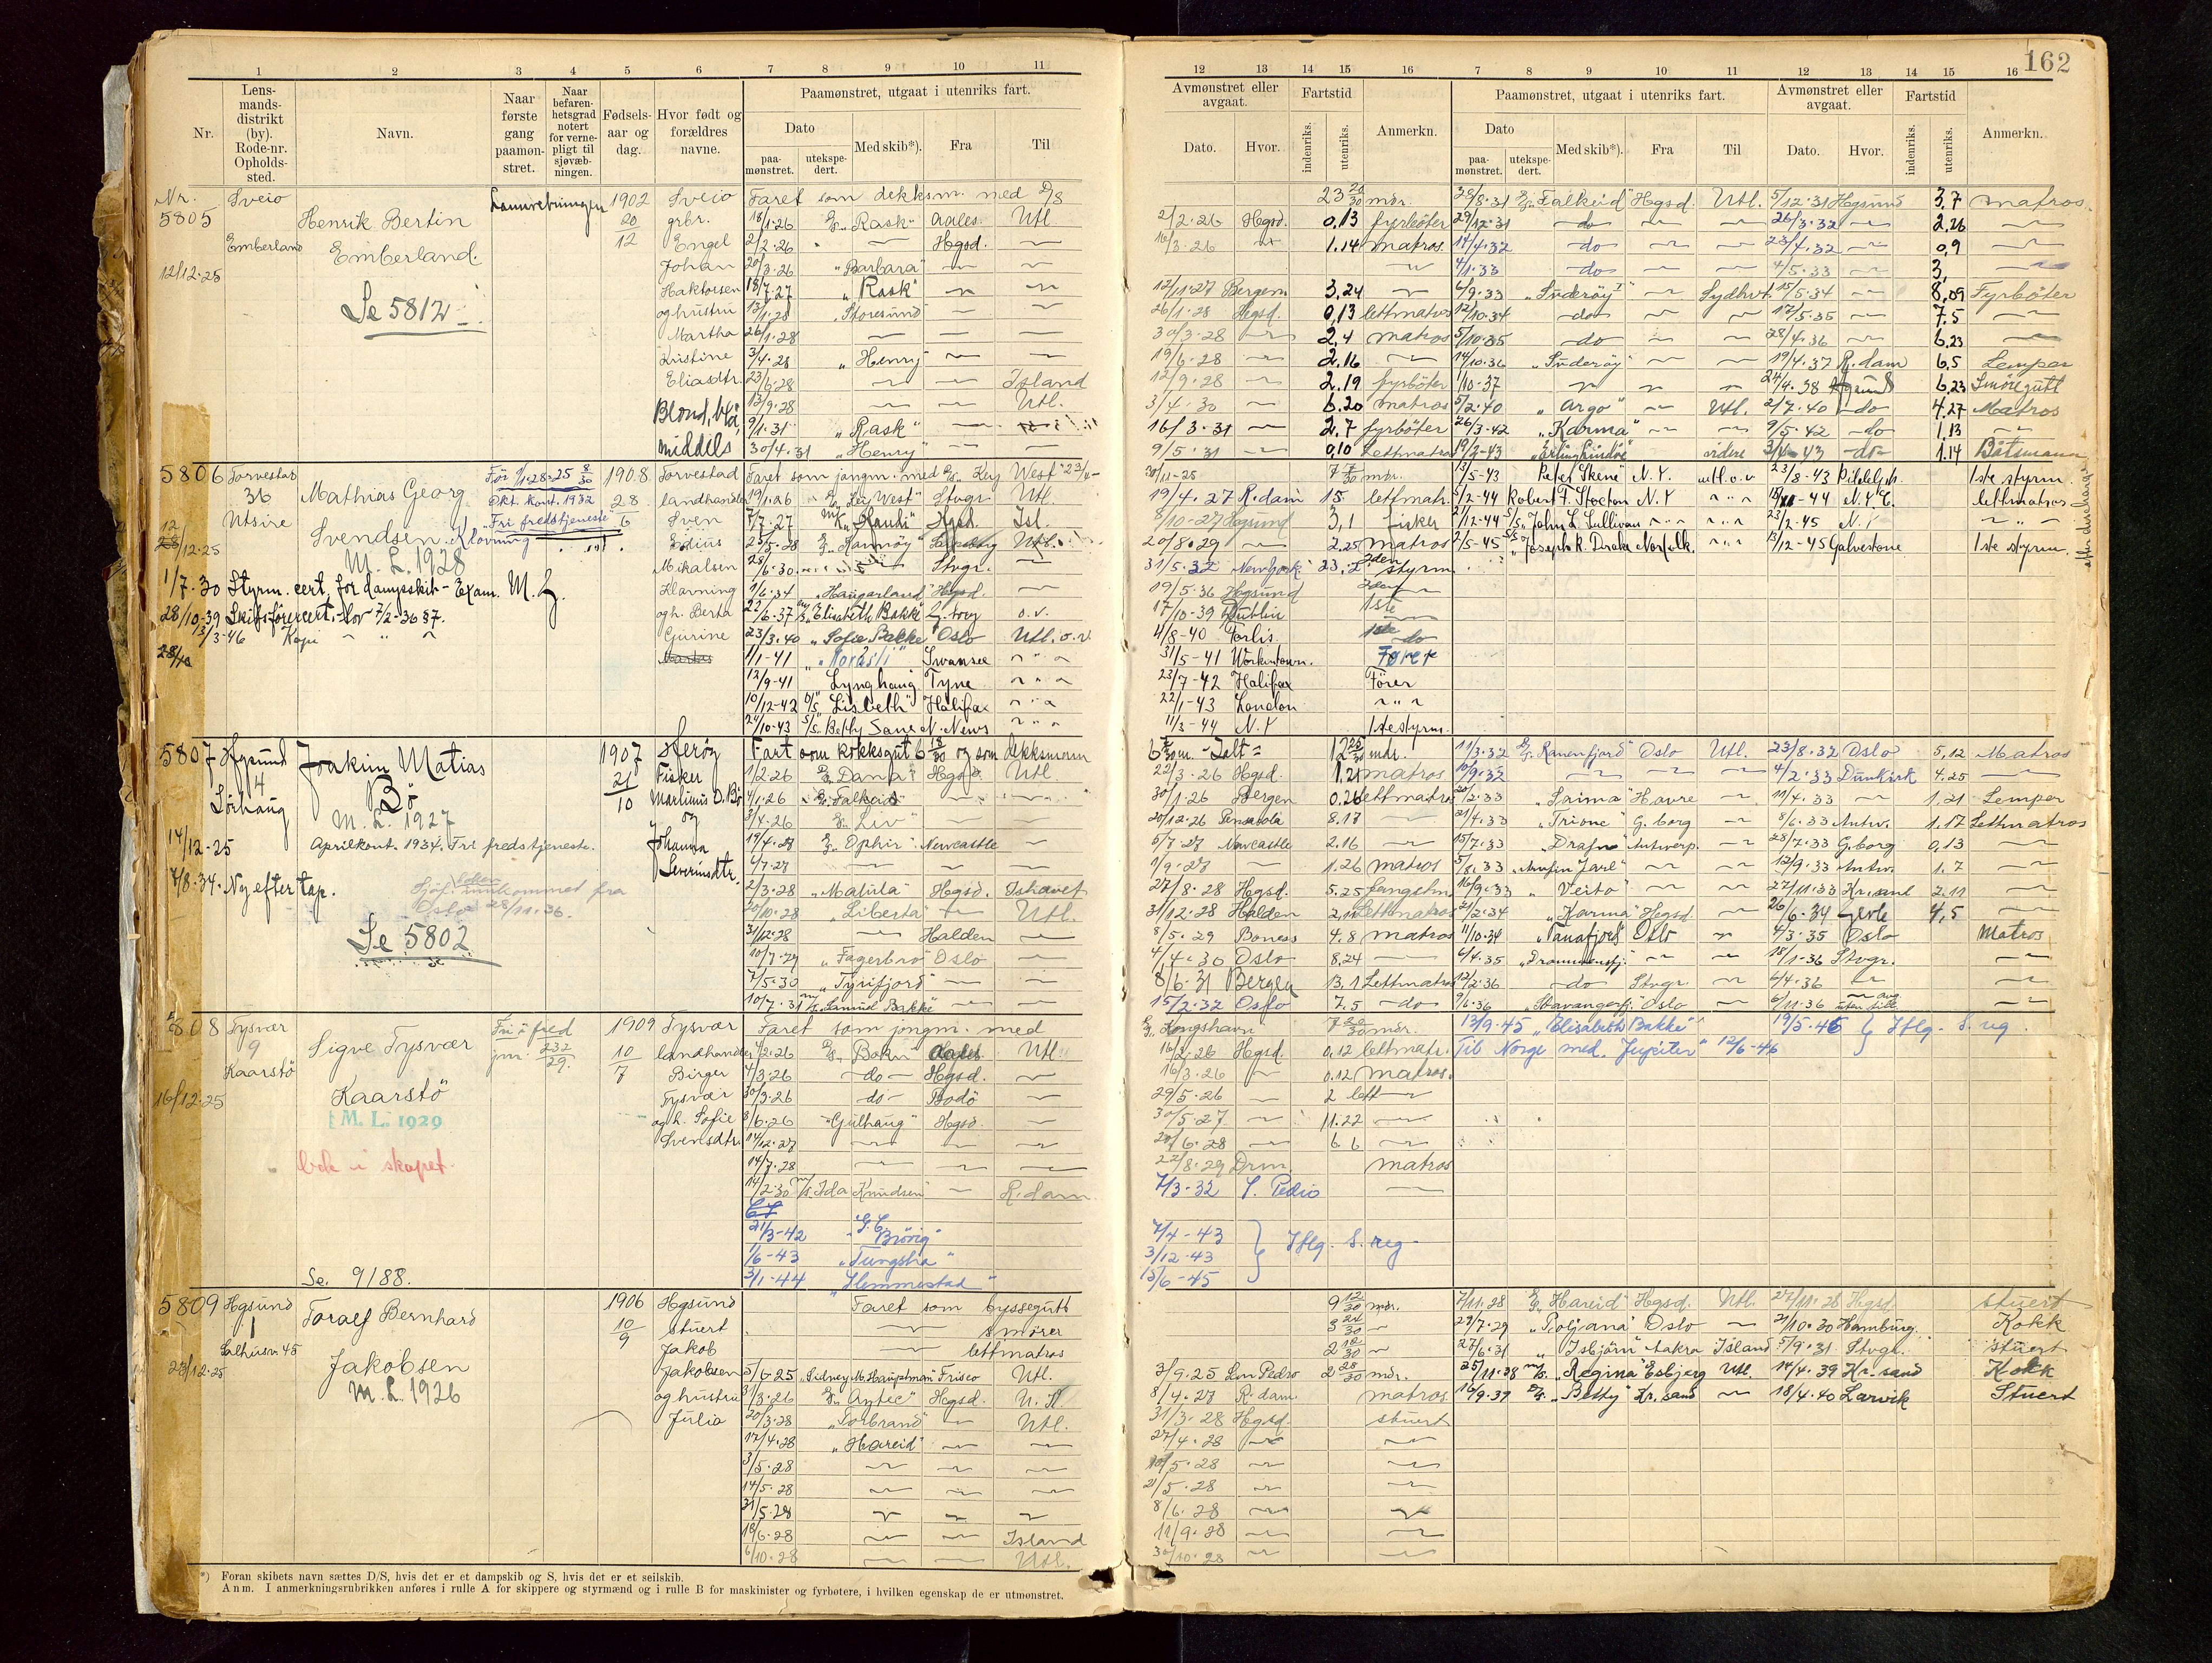 162
1 2 3 4 5 6 7 8 9 10 11
12 13 14 15 16 7 8 9 10 11 12 13 14 15 16
Nr.
Lensmandsdistrikt (by). Rode-nr. Opholdssted.
Navn.
Naar første gang paamønstret.
Naar befarenhetsgrad notert for vernepligt til sjøvæbningen.
Fødselsaar og dag.
Hvor født og forældres navne.
Paamønstret, utgaat i utenriks fart.
Dato
paamønstret. utekspedert.
Med skib*).
Fra
Til
Avmønstret eller avgaat.
Dato. Hvor.
Fartstid
indenriks. utenriks.
Anmerkn.
Paamønstret, utgaat i utenriks fart.
Dato
paamønstret. utekspedert.
Med skib*). Fra Til
Avmønstret eller avgaat.
Dato. Hvor.
Fartstid
indenriks. utenriks.
Anmerkn.
Nr. 5805
Sveio
Emberland
12/12-25
Henrik Bertin
Emberland.
Se 5812
1902
20
12
Sveio
grbr.
Engel
Johan
Haktorsen
og hustru
Martha
Kristine
Eliasdtr.
Blond, blå,
middels
Faret som dekksm. med D/S
18/1.26 "Rask" Aales. Utl
2/2.26 Hgsd.
20/3.26 "Barbara"
18/7.27 "Rask"
13/1.28 "Storesund"
26/1.28
3/4.28 "Henry"
23/6.28 Island
13/9.28 Utl.
9/1.31 "Rask"
30/4.31 "Henry"
23 20/30 mdr.
2/2.26 Hgsd. 0,13 fyrböter
16/3.26 1.14 matros
12/11.27 Bergen 3,24
26/1.28 Hgsd. 0,13 lettmatros
30/3-28 2,4 matros
19/6.28 2.16
12/9.28 2.19 fyrböter
3/4.30 6.20 matros
16/3.31 2,7 fyrböter
9/5.31 0,10 Lettmatros
28/8.31 "Falkeid" Hgsd. Utl. 5/12.31 Hgsund 3,7 matros
29/12.31 do 26/3.32 2,26
14/4.32 do 23/4.32 0,9
4/1.33 do 4/5.33 3,
6/9.33 "Suderöy I" Sydhvt. 15/5.34 8,09 Fyrböter
12/10.34 do 12/5.35 7.5
5/10.35 do 28/4.36 6,23
14/10.36 "Suderöy" 19/4.37 R.dam 6,5 Lemper
1/10.37 24/4.38 Hgsund 6,23 Smöregutt
5/2.40 "Argo" Utl. 2/7.40 do 4,27 Matros
26/3-42 "Karma" 9/5-42 do 1,13
19/2-43 videre 3/4-43 do 1.14 Båtsmann
5806
Torvestad
36
Utsire
12/12.25
Mathias Georg
Svendsen Klovning
M. L. 1928
Okt. kont. 1932
"Fri fredstjeneste"
1/7-30 Styrm. cert. for dampskib - Exam. M. L.
28/10.39 Skibsförercert.
13/3-46 Kopi
1908
28
6
Torvestad
landhandler
Sven
Edius
Mikalsen
Klovning
og h. Berta
Gurine
Faret som jongm. med D/S Key West
19/1.26 "Key West" Stvgr. Utl.
7/7.27 "Haudi" Hgsd. Isl.
25/5.28 "Karmöy" Utl.
28/6.30 Stvgr.
1/6.34 "Haugarland" Hgsd.
22/6.37 "Elisabeth Bakke" G.borg o.v.
23/3.40 "Sofie Bakke" Oslo Utl. o.v.
1/1-41 "Noråsli" Swansea
12/9-41 Lynghaug Tyne
10/12-42 "Lisbeth" Halifax
24/10-43 Betsy Sane N. News
30/11-25 mdr.
19/4.27 R.dam 15 lettmatr.
8/10-27 Hgsund 3,1 fisker
20/8.29 2.25 matros
31/5.32 New York 23. 2den styrm.
19/5.36 Hgsund 2den
17/10-39 Dublin 1ste
4/8-40 Forlis. do
31/5-41 Workintown. Fører
23/7-42 Halifax Förer
22/1-43 London
11/3-44 N.Y 1ste styrm.
13/5-43 Peter Skene N.Y. utl. o.v. 23/8-43 1ste styrm.
5/2-44 Robert F. Stocton N.Y -44 N.Y.C. lettmatros
21/12-44 John L. Sullivan 23/2-45 N.Y
2/5-45 Joseph R. Drake Norfolk. 13/12-45 Galvestone 1ste styrm.
etter discharge
5807
Hgsund
4
Sörhaug
14/12-25
4/8.34. Ny efter tap.
Joakim Matias
Bö
M. L. 1927
Aprilkont. 1934. Fri fredstjeneste.
Sjöf. rullen innkommet fra
Oslo 28/11.36.
Se 5802
1907
21
10
Heröy
Fisker
Martinus D. Bö
og
Johanna
Severinsdtr.
Fart som kokksgut 6 18/30 og som dekksmann
1/2.26 "Dana" Hgsd. Utl.
4/1.26 "Falkeid"
3/4.26 "Liv"
19/4.27 "Ophir" Newcastle
6/7.27
2/3.28 "Matula" Hgsd. Ishavet
20/10.28 "Liberta" Utl.
31/12.28 Halden
10/7.29 "Fagerbro" Oslo
7/5.30 "Tyrifjord"
10/7.31 "Samuel Bakke"
mdr.
22/3.26 Hgsd. 1,21 matros
30/1.26 Bergen 0.26 lettmatros
20/12.26 Pensacola 8.17
5/7.27 Newcastle 2.16
1/9.27 1.26 matros
27/8.28 Hgsd. 5.25 fangstm
31/12.28 Halden 2,11 Lettmatros
8/5.29 Boness 4.8 matros
4/4.30 Oslo 8.24
8/6.31 Bergen 13,1 Lettmatros
15/2.32 Oslo 7,5 do
11/3.32 "Ranenfjord" Oslo Utl. 23/8.32 Oslo 5,12 Matros
10/9.32 4/2.33 Dunkirk 4.25
20/2.33 "Saima" Havre 11/4.33 1,21 Lemper
21/4.33 "Trione" G.borg 8/6.33 Antw. 1.17 Lettmatros
15/7.33 "Drafn" Antwerp. 28/7.33 G.borg 0,13
5/8.33 "Arnfinn Jarl" 12/9.33 Antw. 1.7
16/9.33 "Veito" 27/11.33 Kr.sand 2,11
21/2.34 "Karma" Hgsd 26/6.34 Gevle 4,5
11/10.34 "Tanafjord" Oslo 4/3.35 Oslo Matros
6/4.35 "Drammensfj." 18/1-36 Stvgr.
12/2.36 do Stvgr. 6/4.36
9/6.36 Stavangerfj. Oslo 6/11.36
5808
Tysvær
9
Kaarstö
16/12.25
Sigve Tysvær
Kaarstö
M. L. 1929
bok i skapet.
Se. 9188.
Fri i fred
jnr. 232
29.
1909
10
7
Tysvær
landhandler
Birger
Tysvær
og h. Sofie
Svensdtr.
Faret som jongm. med
4/2.26 "Bokn" Aales. Utl.
4/3.26 do Hgsd.
30/3.26 do Bodö
8/6.26 "Gulhaug" Hgsd.
14/12.27
14/7.28
14/2.30 M/S Ida Knudsen R.dam
21/3-42 "G. C. Brövig"
1/6-43 "Tungsha"
3/1-44 "Hemmestad"
Kongshavn mdr.
16/2.26 Hgsd. 0,12 lettmatr.
16/3.26 0.12 matros.
29/5.26 2 lett
30/5.27 11.22
20/6.28 6. 6
22/8.29 Drm. matros
7/3-32 S. Pedro
7/4-43
3/12-43
13/6-45
Iflg. S. reg.
13/9-45 "Elisabeth Bakke" 19/5-46 Iflg. S. reg.
Til Norge med "Jupiter" 12/6-46
5809
Hgsund
1
Salhusv. 45
23/12.25
Toralf Bernhard
Jakobsen
M. L. 1926
1906
10
9
Hgsund
stuert
Jakob
Jakobsen
og hustru
Julia
Faret som byssegutt
smører
lettmatros
5/6.25 "Sidney M. Hauptman" Frisco Utl.
31/3.26 Hgsd.
20/3.28 "Torbrand" Utl.
17/4.28 "Hareid"
3/5.28
14/5.28
21/5.28
19/6.28 Island
6/10.28 Utl.
9 12/30 mdr.
3 24/30
2 18/30
3/9.25 San Pedro 2 28/30 mdr.
8/4.27 R.dam matros
31/3.28 Hgsd. stuert
27/4.28
10/5.28
21/5.28
8/6.28
11/9.28
30/10.28
7/11.28 "Hareid" Hgsd. Utl. 27/11.28 Hgsd. stuert
29/7.29 "Poljana" Oslo 21/10.30 Hamburg. Kokk
27/6.31 "Isbjörn" Aakra Island 5/9.31 Stvgr. stuert
25/11.38 M/S "Regina" Esbjerg Utl. 14/4.39 Kr.sand Kokk
16/9.39 "Betty" Kr.sand 18/4.40 Larvik Stuert
*) Foran skibets navn sættes D/S, hvis det er et dampskib og S, hvis det er et seilskib.
Anm. I anmerkningsrubrikken anføres i rulle A for skippere og styrmænd og i rulle B for maskinister og fyrbøtere, i hvilken egenskap de er utmønstret.